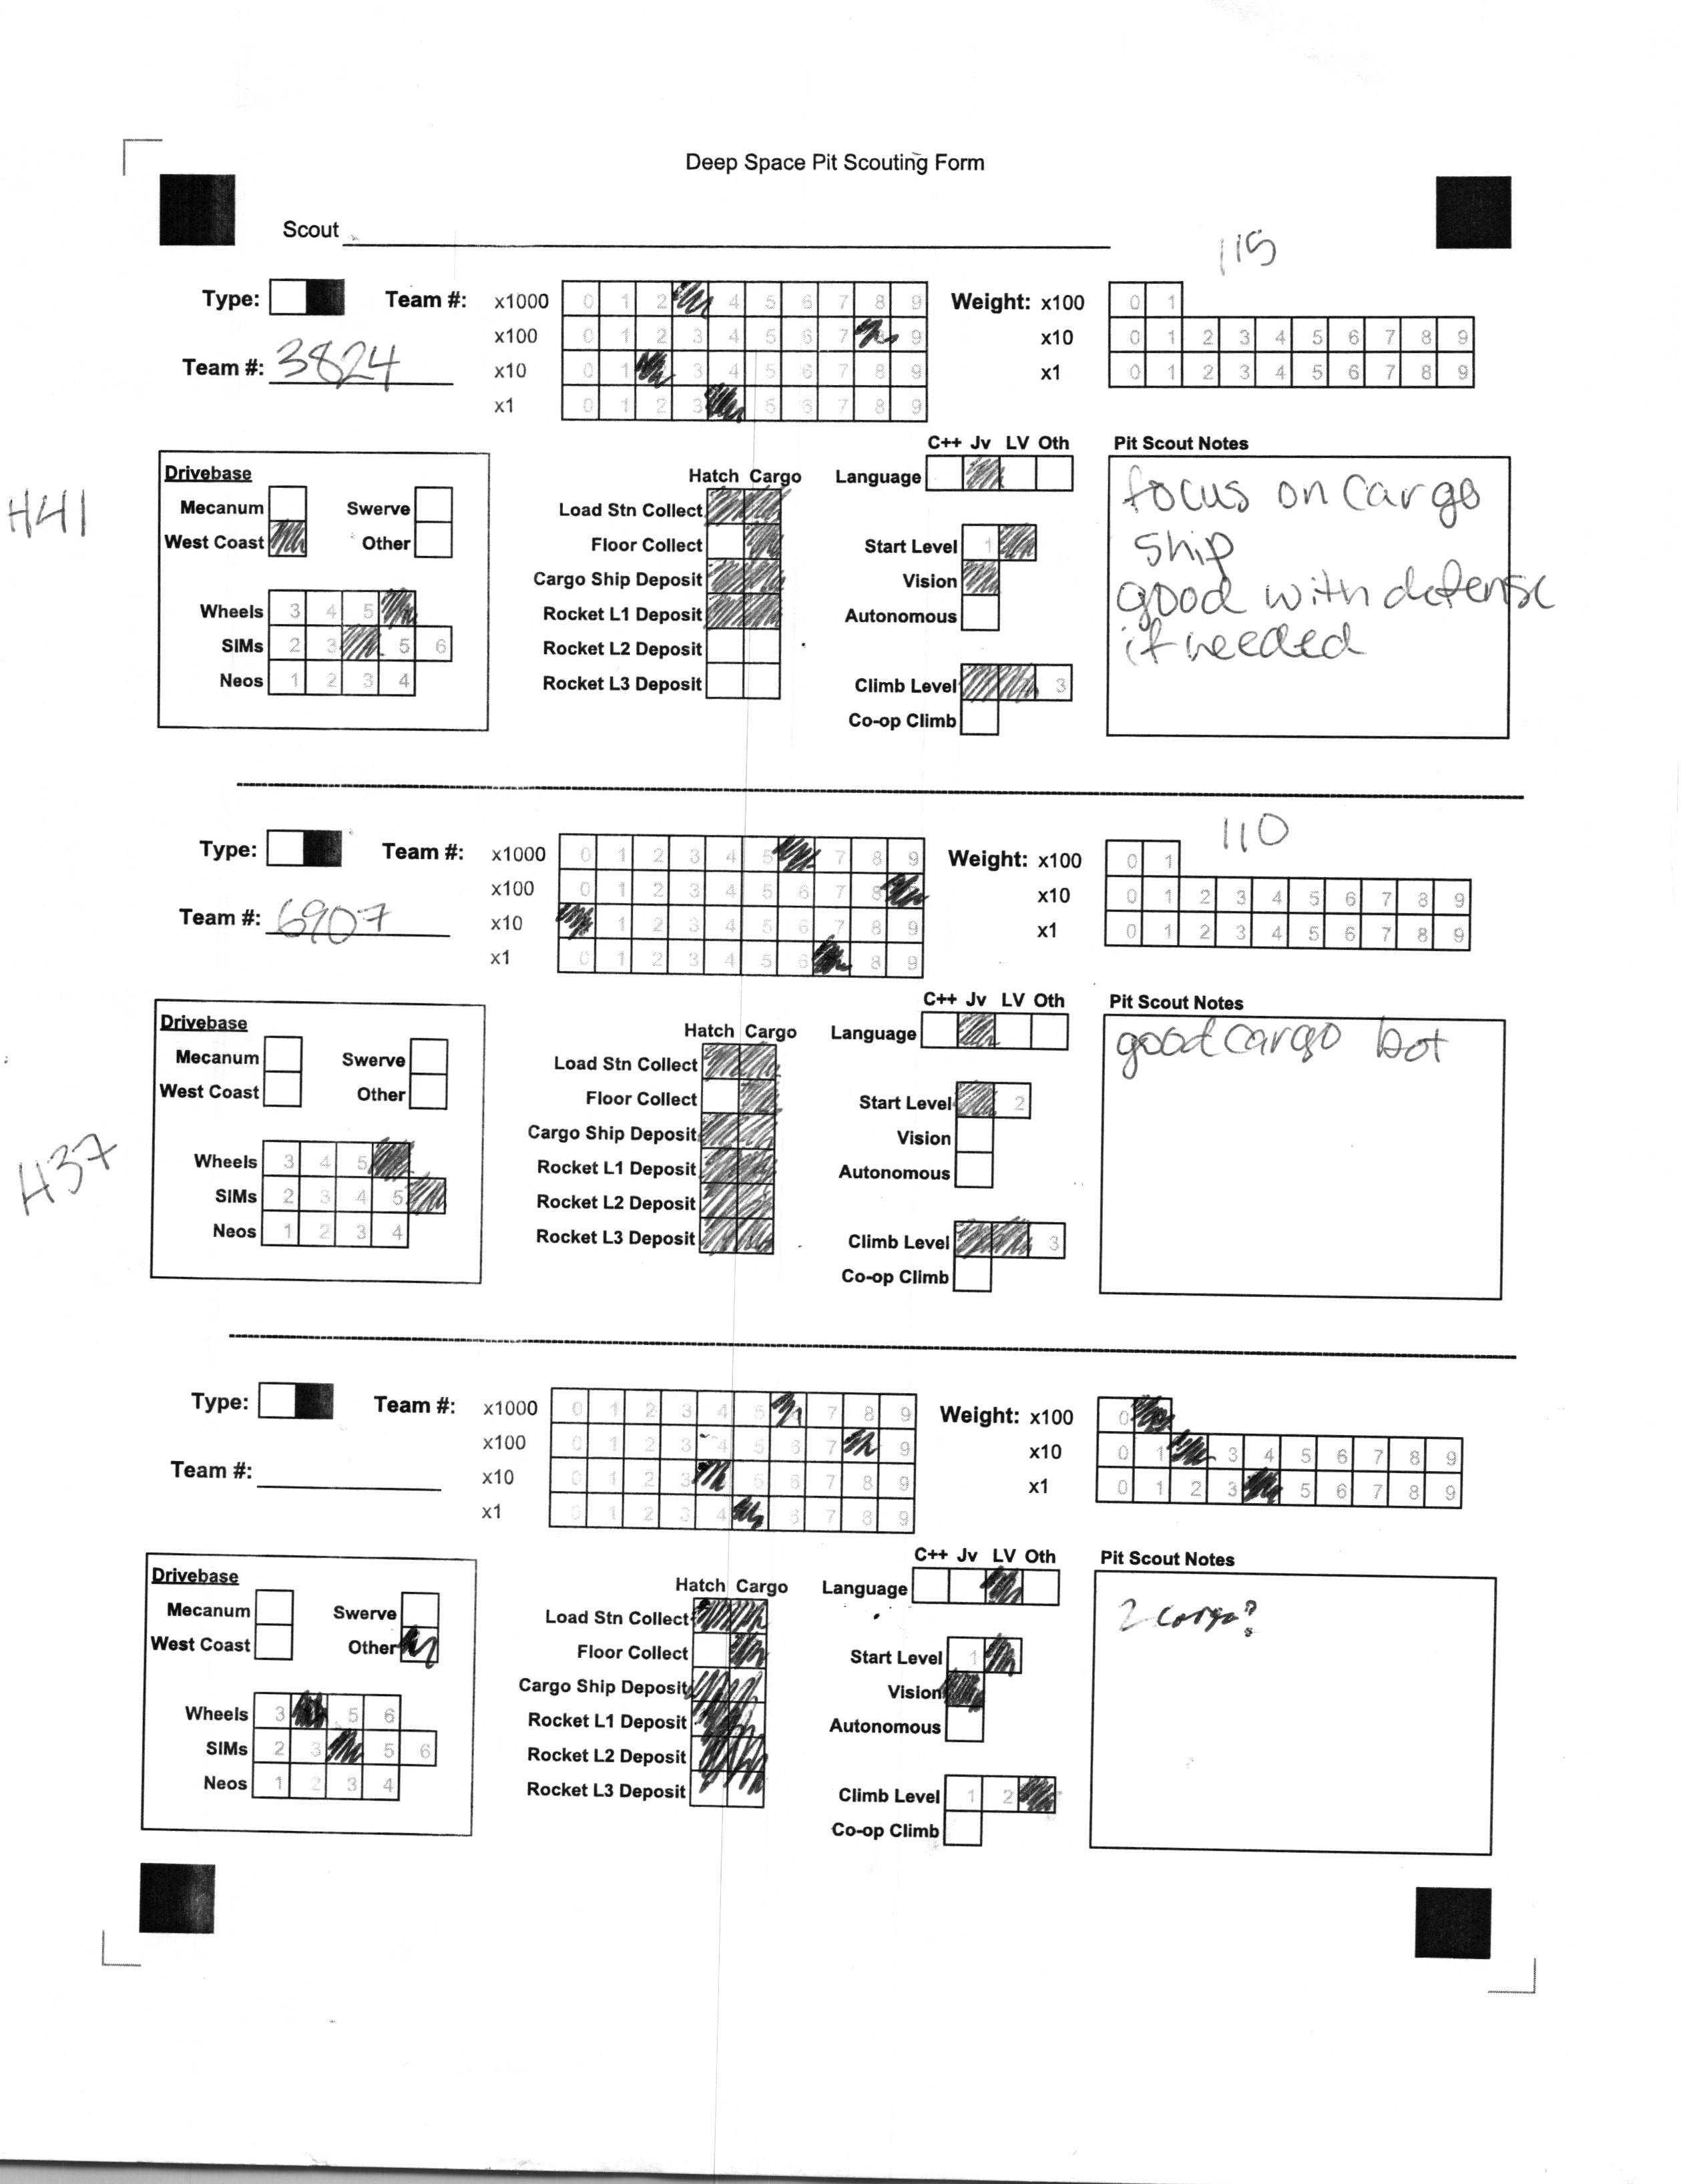 Deep Space Pit Scouting Form
Scout
115
Type: Team #: x1000 0 1 2 4 5 6 7 8 9 Weight: x100 0 1
x100 0 1 2 3 4 5 6 7 9 x10 0 1 2 3 4 5 6 7 8 9
Team #: 3824 x10 0 1 3 4 5 6 7 8 9 x1 0 1 2 3 4 5 6 7 8 9
x1 0 1 2 3 5 6 7 8 9
H41
Drivebase
Mecanum Swerve
West Coast Other
Wheels 3 4 5
SIMs 2 3 5 6
Neos 1 2 3 4
Hatch Cargo
Load Stn Collect
Floor Collect
Cargo Ship Deposit
Rocket L1 Deposit
Rocket L2 Deposit
Rocket L3 Deposit
C++ Jv LV Oth
Language
Start Level 1
Vision
Autonomous
Climb Level 3
Co-op Climb
Pit Scout Notes
focus on cargo
ship
good with defense
if needed
110
Type: Team #: x1000 0 1 2 3 4 5 7 8 9 Weight: x100 0 1
x100 0 1 2 3 4 5 6 7 8 x10 0 1 2 3 4 5 6 7 8 9
Team #: 6907 x10 1 2 3 4 5 6 7 8 9 x1 0 1 2 3 4 5 6 7 8 9
x1 0 1 2 3 4 5 6 8 9
H37
Drivebase
Mecanum Swerve
West Coast Other
Wheels 3 4 5
SIMs 2 3 4 5
Neos 1 2 3 4
Hatch Cargo
Load Stn Collect
Floor Collect
Cargo Ship Deposit
Rocket L1 Deposit
Rocket L2 Deposit
Rocket L3 Deposit
C++ Jv LV Oth
Language
Start Level 2
Vision
Autonomous
Climb Level 3
Co-op Climb
Pit Scout Notes
good cargo bot
Type: Team #: x1000 0 1 2 3 4 5 7 8 9 Weight: x100 0
x100 0 1 2 3 4 5 6 7 9 x10 0 1 3 4 5 6 7 8 9
Team #: x10 0 1 2 3 5 6 7 8 9 x1 0 1 2 3 5 6 7 8 9
x1 0 1 2 3 4 6 7 8 9
Drivebase
Mecanum Swerve
West Coast Other
Wheels 3 5 6
SIMs 2 3 5 6
Neos 1 2 3 4
Hatch Cargo
Load Stn Collect
Floor Collect
Cargo Ship Deposit
Rocket L1 Deposit
Rocket L2 Deposit
Rocket L3 Deposit
C++ Jv LV Oth
Language
Start Level 1
Vision
Autonomous
Climb Level 1 2
Co-op Climb
Pit Scout Notes
2 cargo?